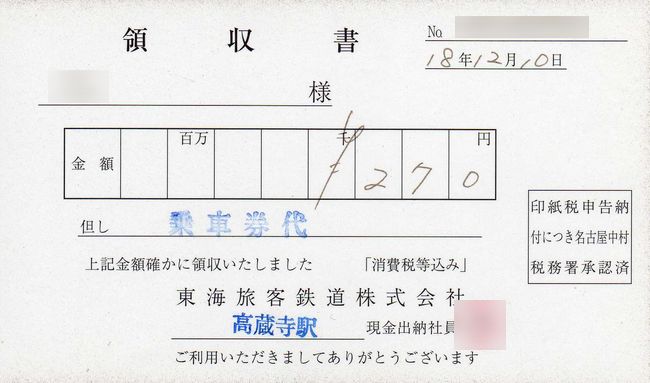 領収書
No
18年12月10日
様
金額 百万 千 円
¥270
但し 乗車券代
上記金額確かに領収いたしました 「消費税等込み」
印紙税申告納
付につき名古屋中村
税務署承認済
東海旅客鉄道株式会社
高蔵寺駅 現金出納社員
ご利用いただきましてありがとうございます